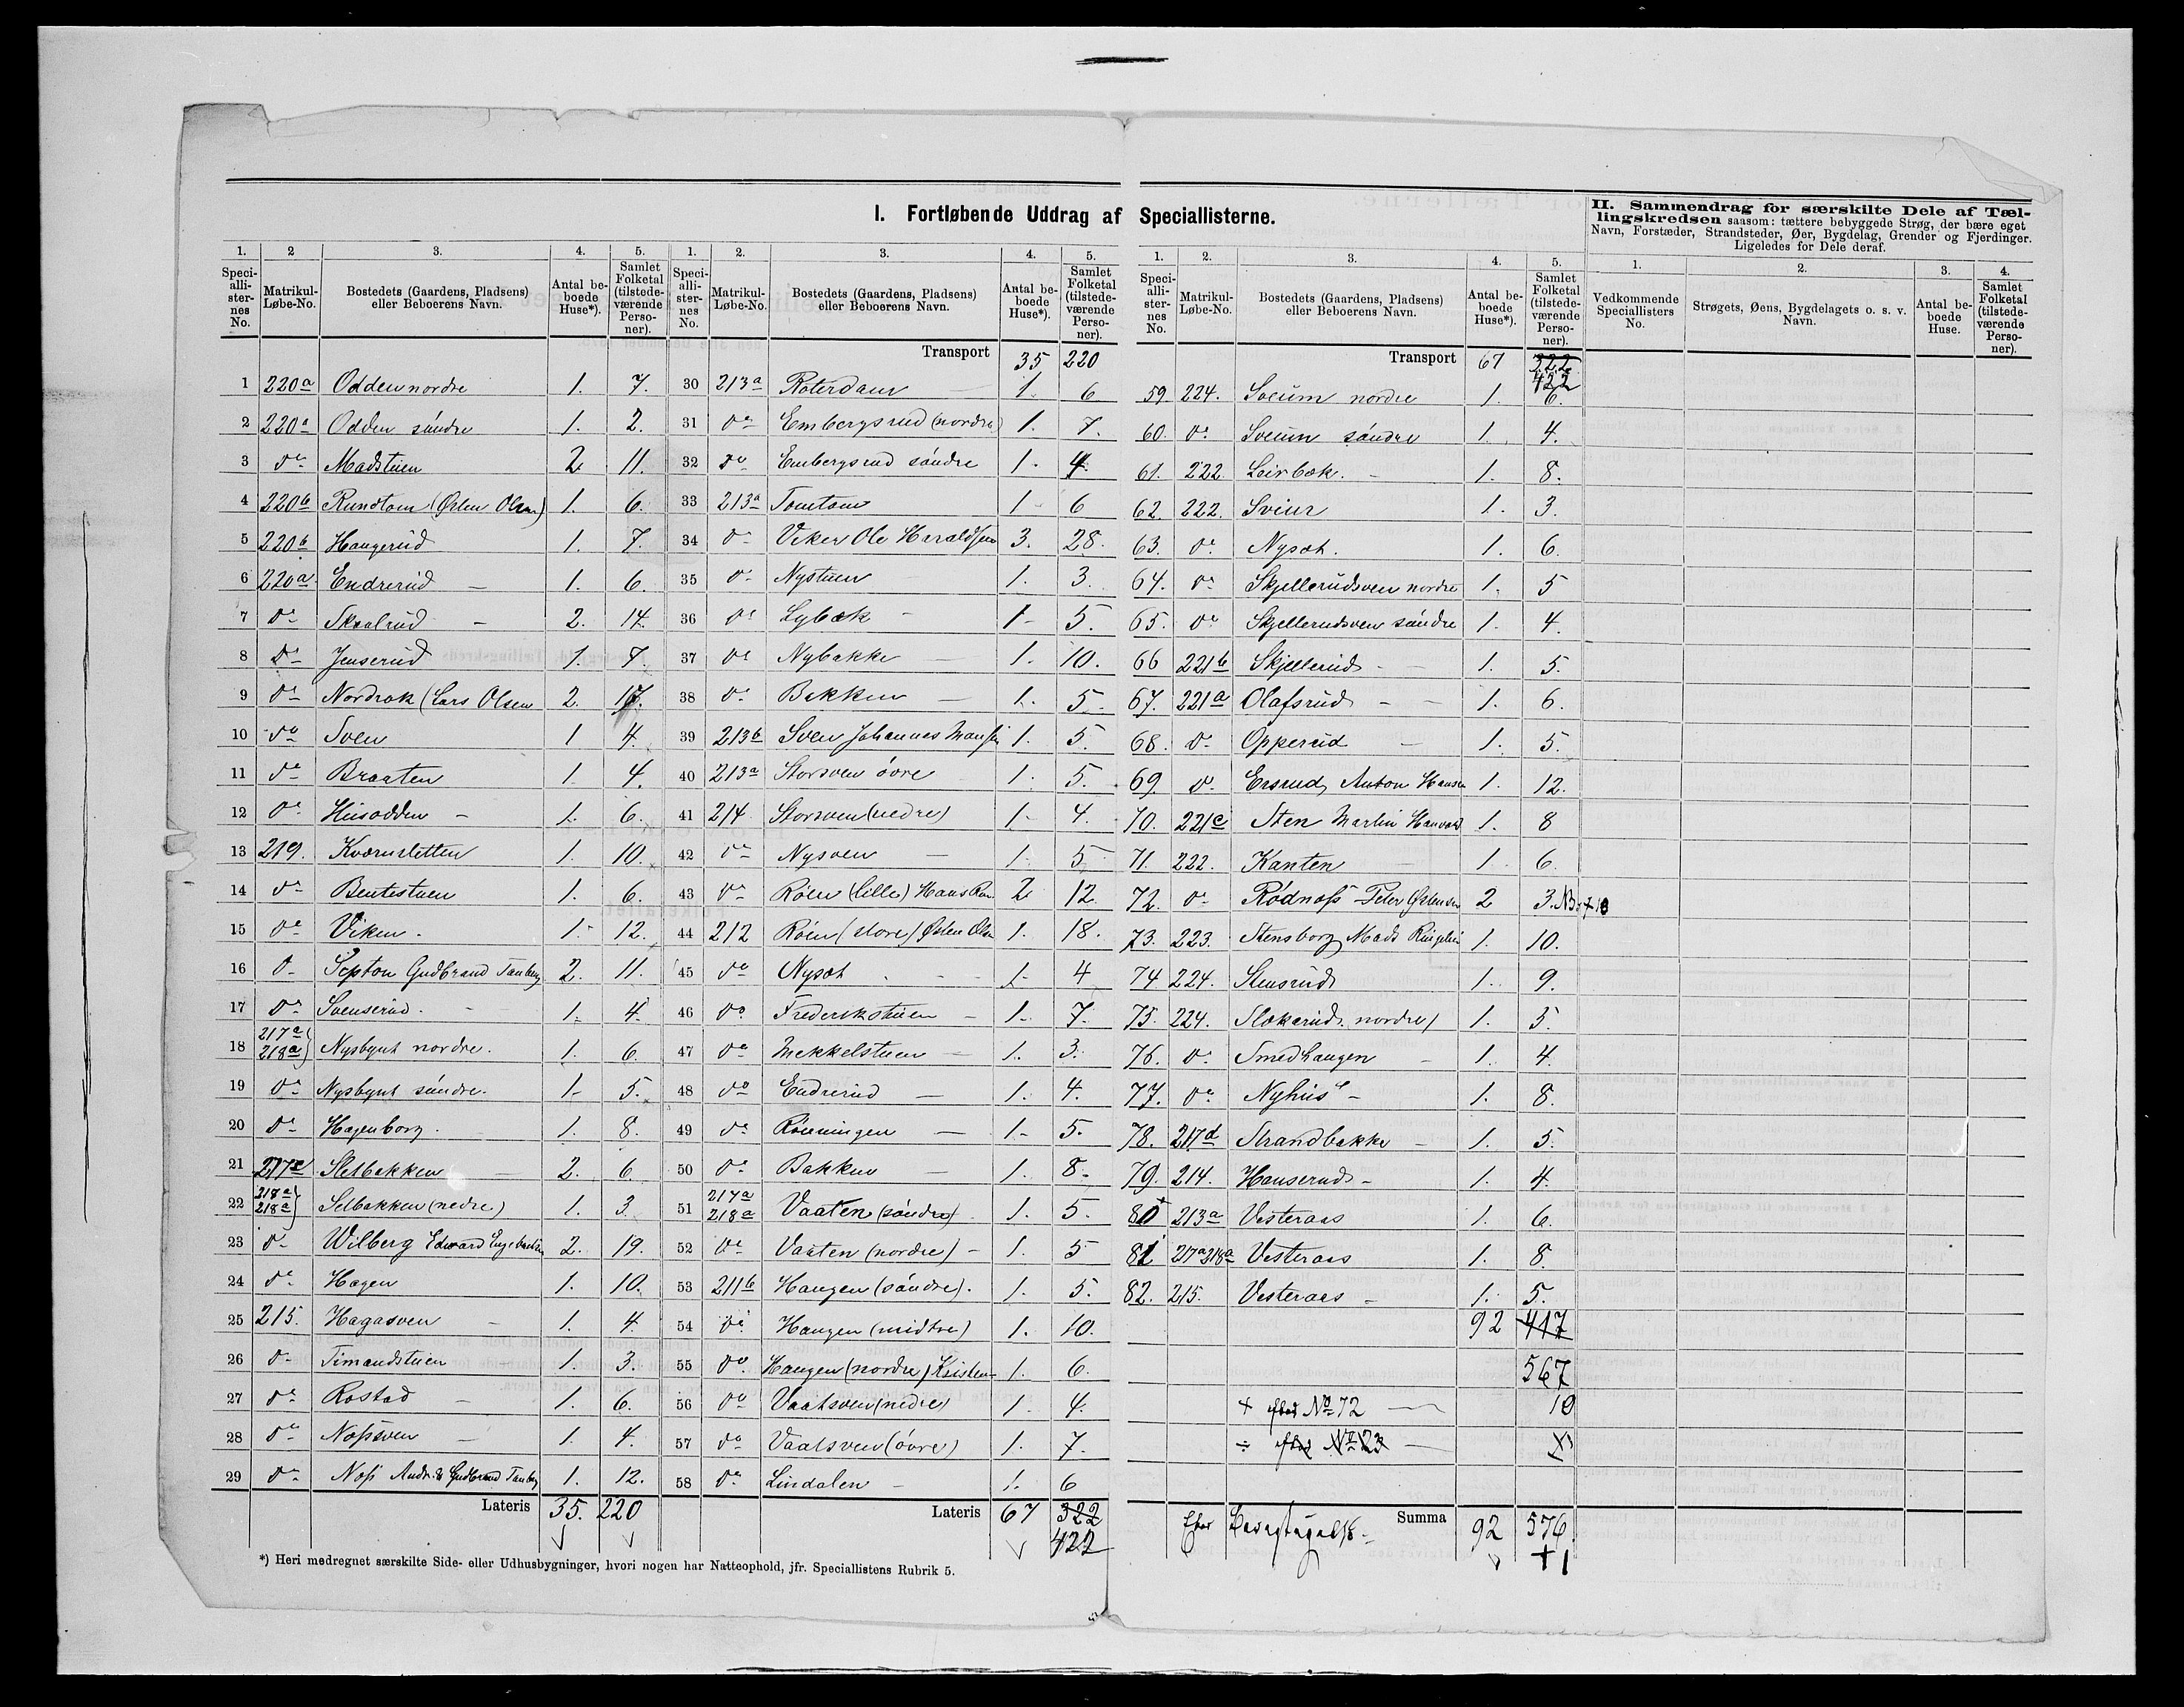 I. Fortløbende Uddrag af Speciallisterne.
II. Sammendrag for særskilte Dele af Tæl-
lingskredsen saasom: tættere bebyggede Strøg, der bære eget
Navn, Forstæder, Strandsteder, Øer, Bygdelag, Grender og Fjerdinger.
Ligeledes for Dele deraf.
1. 2 3. 4. 5.
Speci-alli-ster-nes No. Matrikul-Løbe-No. Bostedets (Gaardens, Pladsens) eller Beboerens Navn. Antal be-boede Huse*). Samlet Folketal (tilstede-værende Perso-ner).
1 220a Odden nordre 1. 7.
2 220a Odden søndre 1. 2.
3 do Madstuen 2 11.
4 220b Rundtom (Østen Olsen) 1. 6.
5 220b Haugerud 1. 7.
6 220a Endrerud 1. 6.
7 do Skaalrud 2. 14.
8 do Jenserud 1. 7.
9 do Nordrak (Lars Olsen 2. 17.
10 do Sven 1 4.
11 do Braaten 1. 4.
12 do Husodden 1. 6.
13 219. Kværnsletten 1. 10.
14 do Bentestuen 1. 6.
15 do Viken. 1. 12.
16 do Gudbrand Tanberg 2. 11.
17 do Svenserud. 1. 4.
18 217a 218a} Nysbynt nordre. 1. 6.
19 do Nysbynt søndre. 1. 5.
20 do Hagenborg. 1. 8.
21 217c Sletbakken 2. 6.
22 218a 218a} Selbakken (nedre) 1. 3.
23 do Wilberg Edvard 2. 19.
24 do Hagen 1. 10.
25 215. Hagasven 1. 4.
26 do Timandstuen 1. 3.
27 do Rostad 1. 6.
28 do Næssven 1. 4.
29 do Næss Gudbrand Tanberg 1. 12.
Lateris 35. 220
1. 2. 3. 4. 5.
Speci-alli-ster-nes No. Matrikul-Løbe-No. Bostedets (Gaardens, Pladsens) eller Beboerens Navn. Antal be-boede Huse*). Samlet Folketal (tilstede-værende Perso-ner).
Transport 35 220
30 213a Roterdam 1 6
31 do Embergsrud (nordre) 1. 7.
32 do Embergsrud søndre 1. 4.
33 213a Tomtom 1 6
34 do Viken Ole Haraldsen 3. 28.
35 do Nystuen 1. 3.
36 do Lybæk 1 5.
37 do Nybakke 1. 10.
38 do Bakken 1. 5.
39 213b Sven Johannes 1. 5.
40 213a Storsven øvre 1. 5.
41 214 Storsven (nedre) 1 4.
42 do Nysven 1. 5
43 do Røen (lille) Hans 2. 12.
44 212 Røen (store) Østen Olsen 1. 18.
45 do Nysæt 1. 4
46 do Frederikstuen 1. 7.
47 do Mekkelstuen 1. 3.
48 do Endrerud 1. 4.
49 do Rønningen 1. 5.
50 do Bakken 1. 8.
51 217a 218a Vaaten (søndre) 1. 5.
52 do Vaaten (nordre) 1. 5
53 211b Haugen (søndre). 1. 5.
54 do Haugen (midtre) 1. 10.
55 do Haugen (nordre) Kristen 1. 6.
56 do Vaatsven (nedre) 1. 4.
57 do Vaatsven (øvre) 1. 7.
58 do Lindalen 1. 6
Lateris 67 322
422
*) Heri medregnet særskilte Side- eller Udhusbygninger, hvori nogen har Natteophold, jfr. Speciallistens Rubrik 5.
1. 2. 3. 4. 5.
Speci-alli-ster-nes No. Matrikul-Løbe-No. Bostedets (Gaardens, Pladsens) eller Beboerens Navn. Antal be-boede Huse*). Samlet Folketal (tilstede-værende Perso-ner).
Transport 67 322
422
59. 224. Sveum nordre 1. 6.
60. do Sveum søndre 1. 4.
61. 222. Leirbæk. 1. 8.
62. 222. Sveiur 1. 3.
63. do Nysæt. 1. 6.
64. do Skjellerudsven nordre 1. 5
65. do Skjellerudsven søndre 1. 4.
66 221b Skjellerud 1. 5.
67. 221a Olafsrud 1. 6.
68. do Opperud 1. 5.
69. do Ersrud, Anton Hansen 1. 12.
70. 221c Sten Martin 1. 8
71. 222. Kanten 1 6.
72. do Rødnæss Peter Østensen 2 3. NB +10
73. 223. Stensborg Mads 1. 10.
74 224. Stensrud 1. 9.
75. 224. Slokerud nordre) 1. 5.
76. do Smedhaugen 1. 4.
77. do Nyhus 1. 8.
78. 217d Strandbakke 1. 5.
79. 214. Hanserud 1. 4.
80 213a Vesteraas 1. 6.
81 217a 218a Vesteraas 1. 8.
82. 215. Vesteraas 1. 5.
92 417
567
+ No 72 10
÷ No 23
Summa 92 576.
+1
1. 2. 3. 4.
Vedkommende Speciallisters No. Strøgets, Øens, Bygdelagets o. s. v. Navn. Antal be-boede Huse. Samlet Folketal (tilstede-værende Perso-ner).